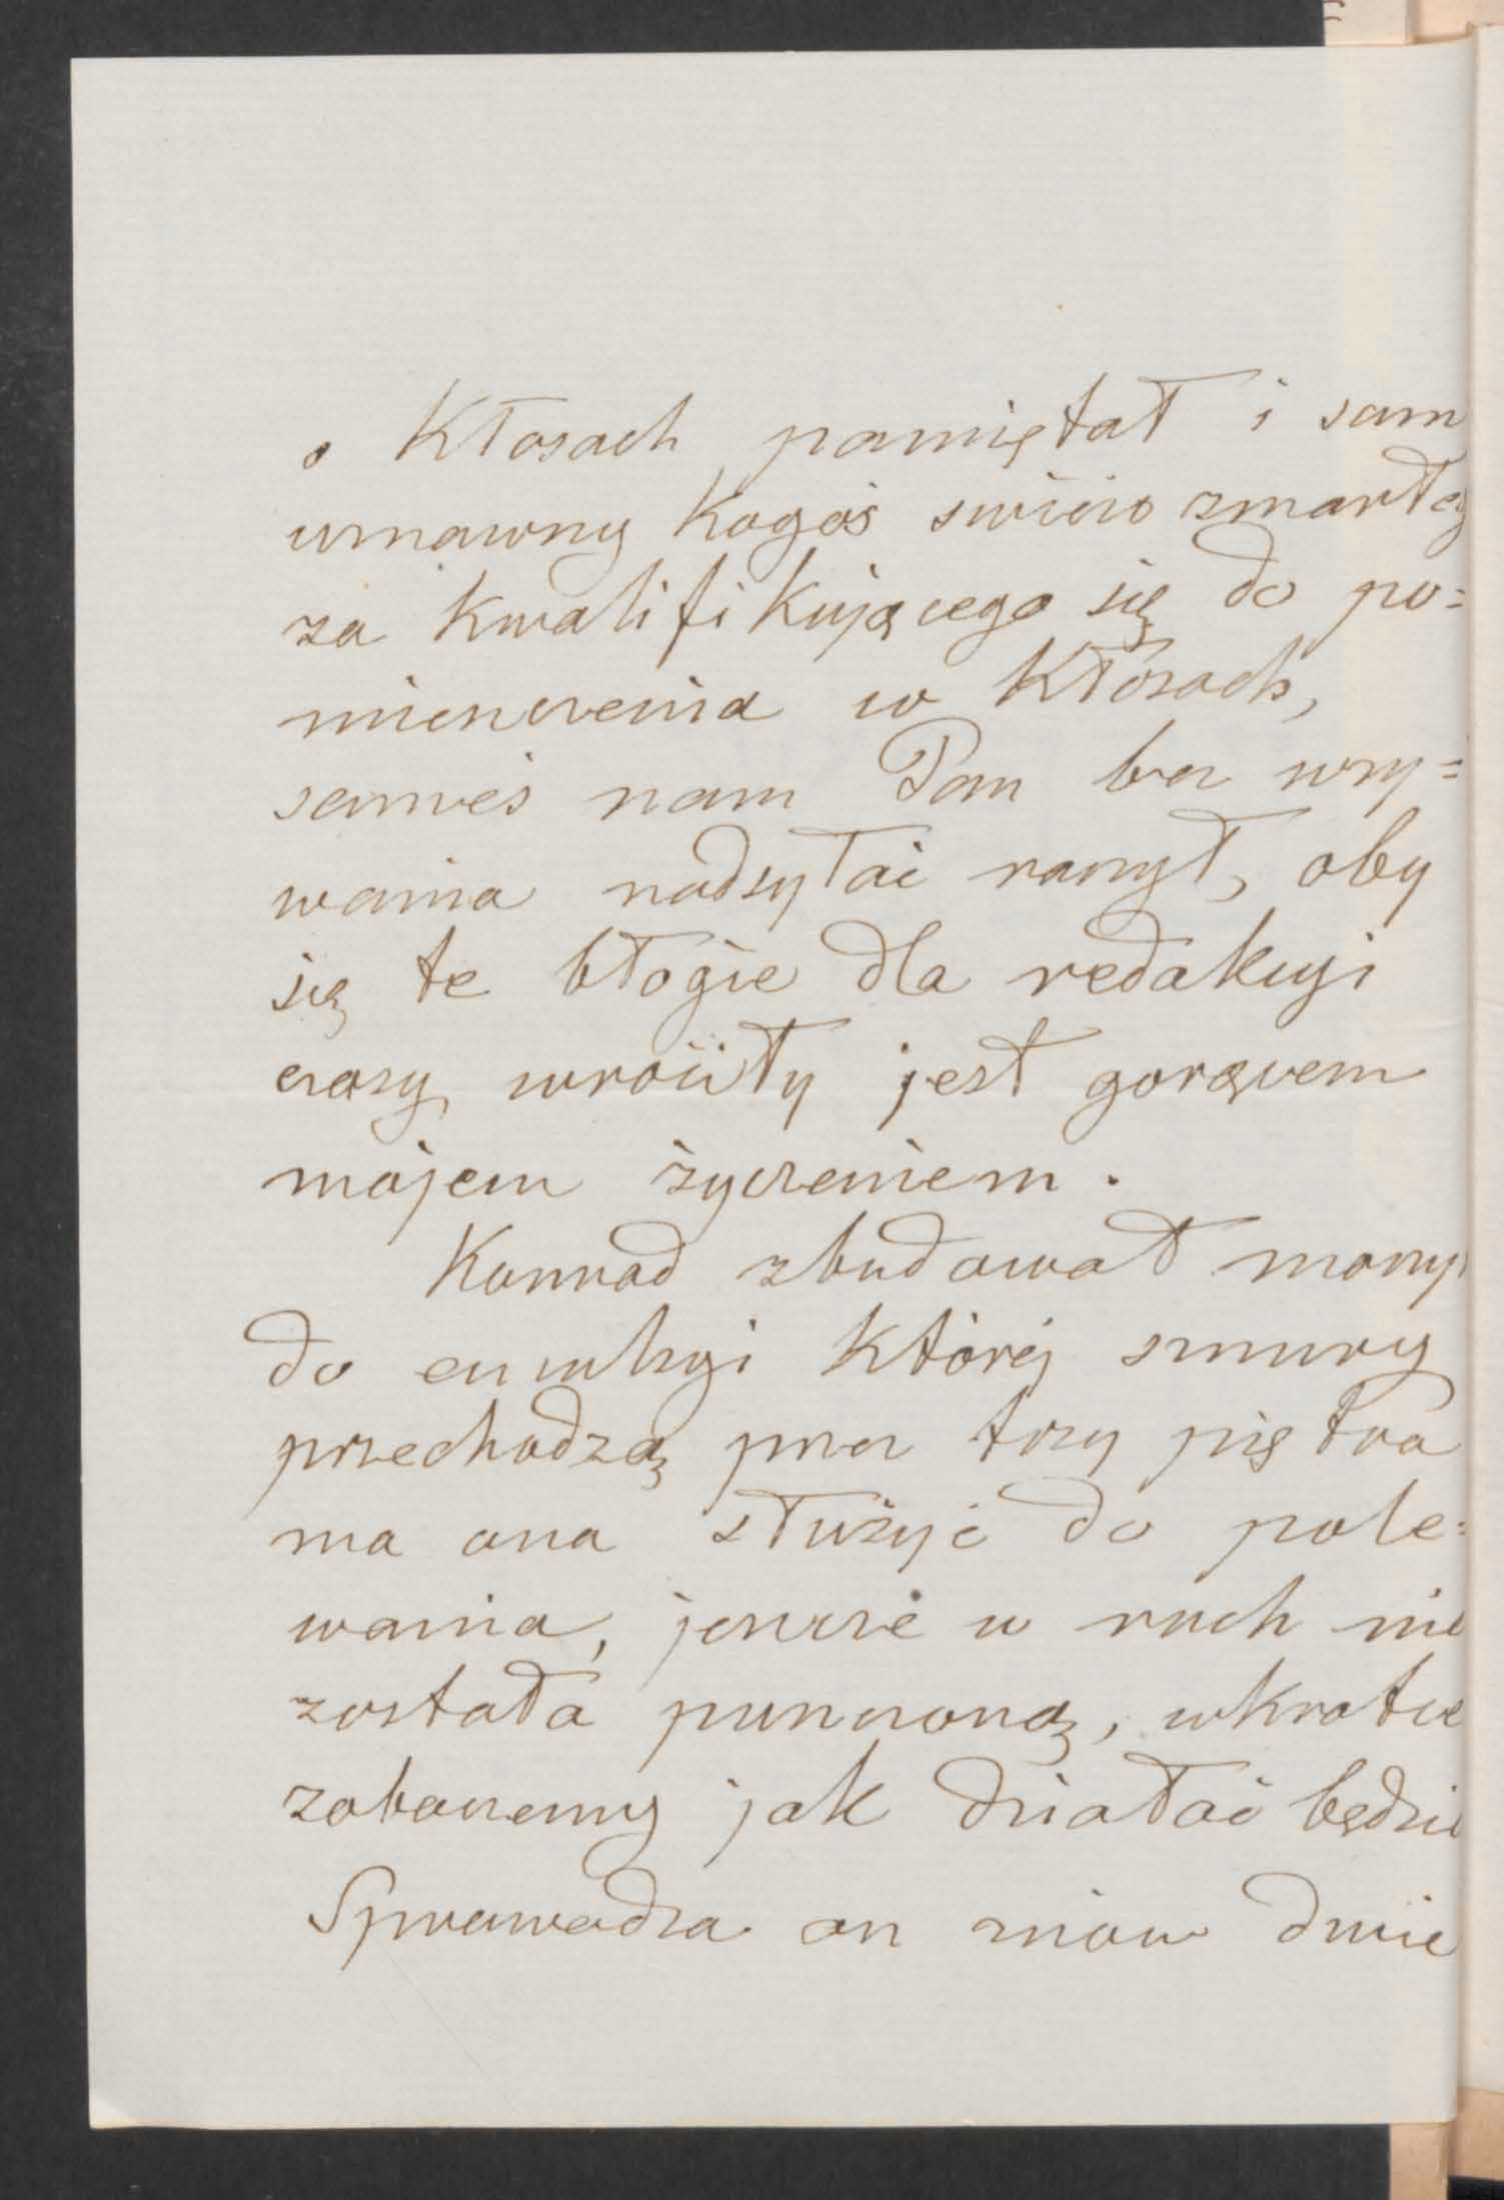 o Kłosach pamiętał i sam
uznawszy kogoś świeżo zmarłeg
za kwalifikującego się do po=
mieszczenia w Kłosach,
zaraześ nam Pan bez wzy=
wania nadsyłać raczył, oby
się te błogie dla redakcyi
czasy wróciły jest gorącem
mojem życzeniem.
Konrad zbudował maszy
do emulsyi której sznury
przechodzą przez trzy piętra
ma ona służyć do pole=
wania, jeszcze w ruch nie
została puszczoną, wkrótce
zobaczemy jak działać będzie
Sprowadza on znów dwie